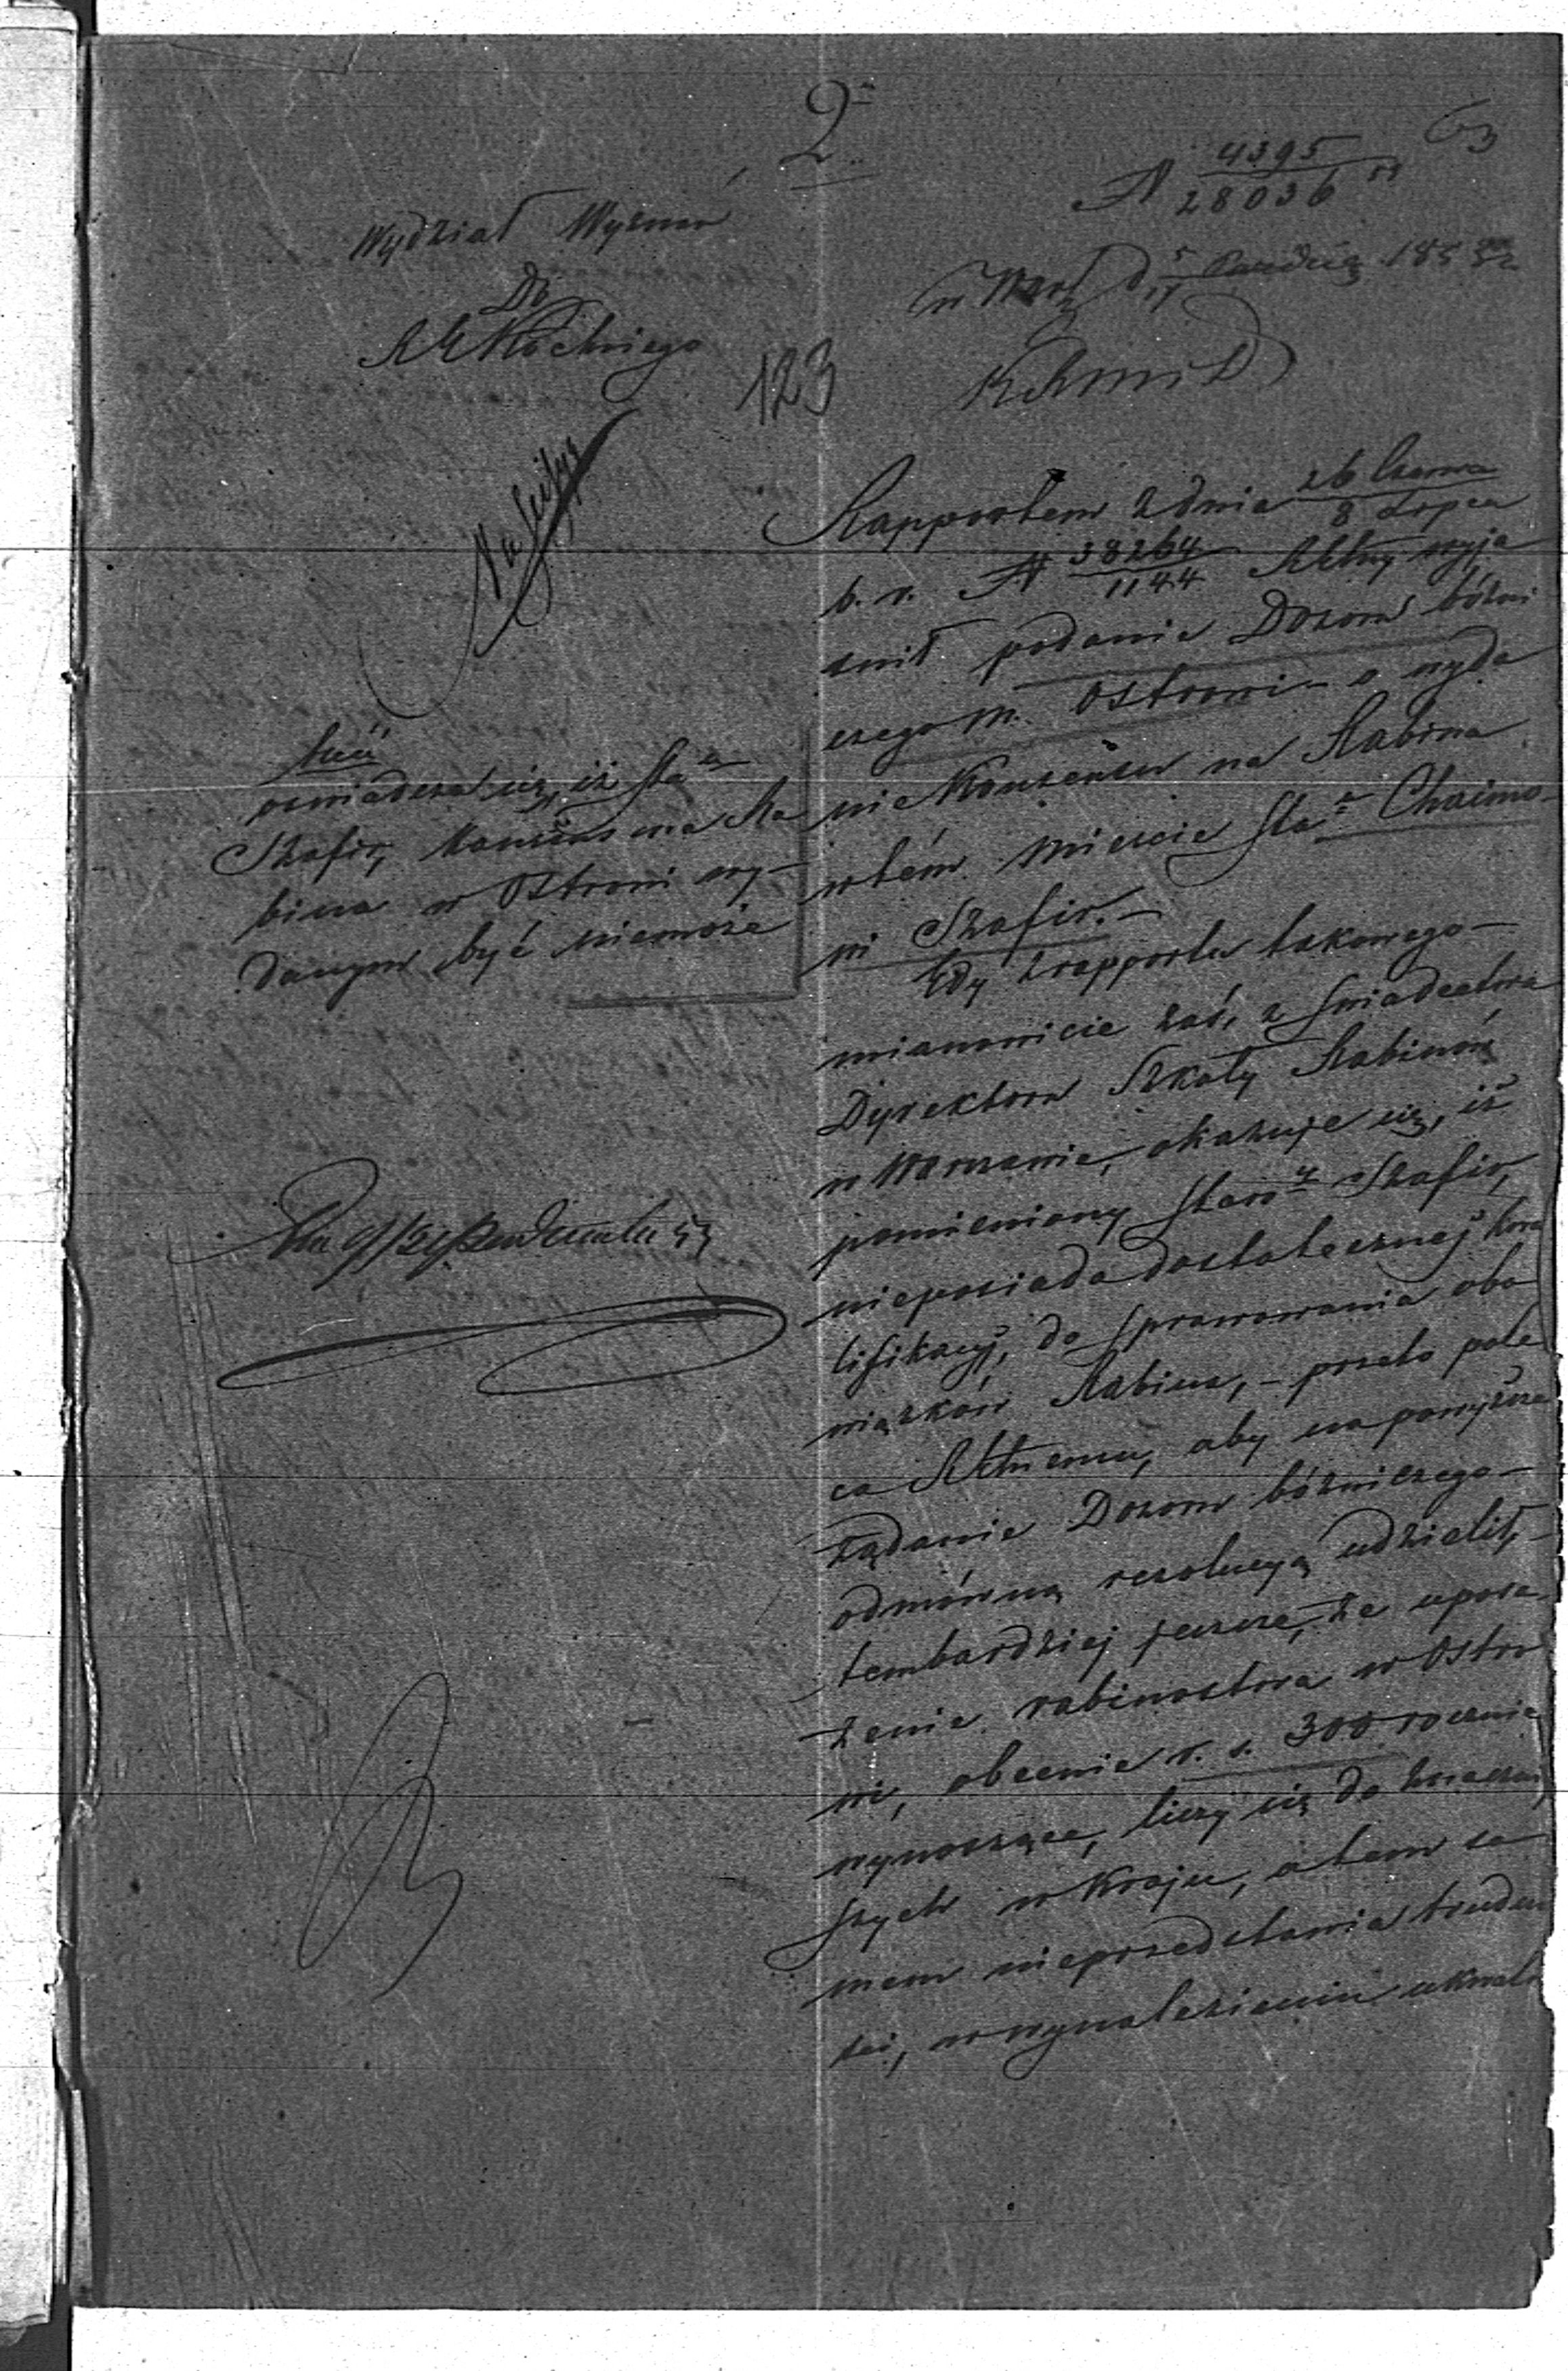 2
63
N 4395/28036
Wydział Wyznań
w War d 5/17 Paźdz 1853
Do
RGPłockiego
123
KRSWiD
Rapportem z dnia 26 Czerwca/8 Lipca
b. r. N 38264/1144 RGtny wyja
śnił podanie Dozoru bóżni
czego m. Ostrowi - o wyda
nie Konsensu na Rabina
w tém mieście Sta Chaimo
wi Szafir. -
Gdy z rapportu takowego -
mianowicie zaś, z świadectwa
Dyrektora Szkoły Rabinów
w Warszawie, okazuje się, iż
pomieniony Star Szafir,
nieposiada dostatecznej kwa
lifikacyi, do sprawowania obo
wiązków Rabina, - przeto pole
ca RGtnemu, aby na powyższe
żądanie Dozoru bóżniczego -
odmówną rezolucyą udzielił, -
tembardziej jeszcze, że uposa
żenie rabinostwa w Ostro
wi, obecnie r. s. 300 rocznie
wynoszące, liczy się do znaczniej
szych w Kraju, a tem sa
mem nieprzedstawia trudno
ści, w wynalezieniu ukwali
oświadcza się, iż Sta
Szafir, Konsens na Ra
bina w Ostrowi wy-
danym być niemoże